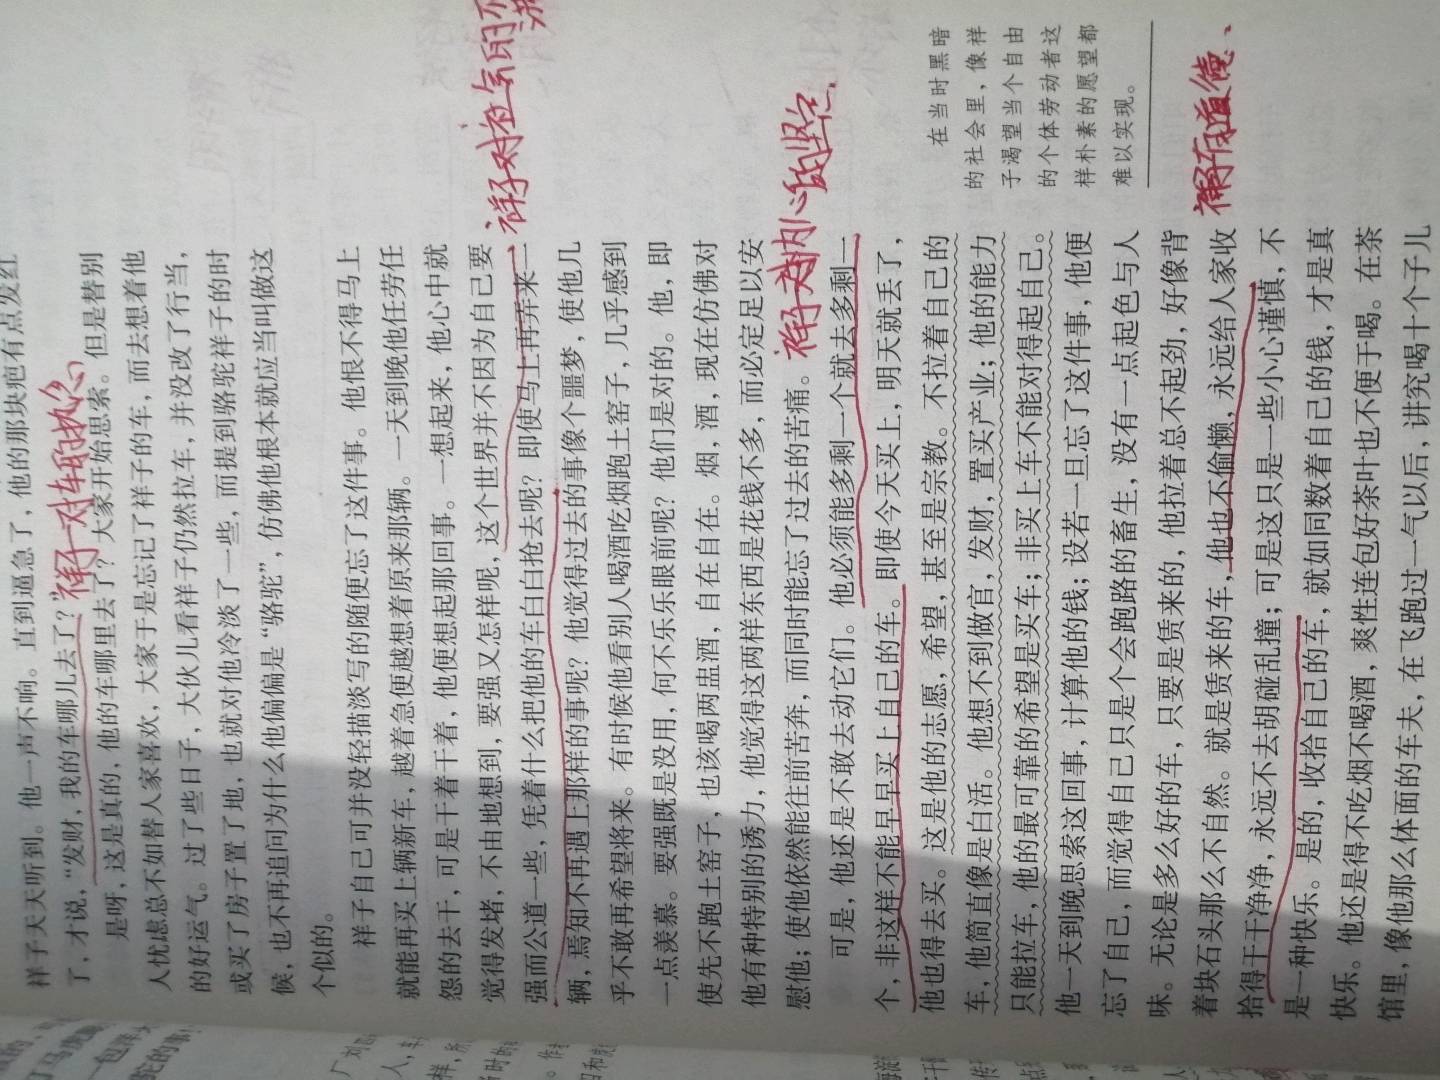 祥子天天听到。他一声不响。直到逼急了，他的那块疤有点发红
了，才说，“发财，我的车哪儿去了？”
祥子对车的执念
是呀，这是真的，他的车哪里去了？大家开始思索。但是替别
人忧虑总不如替人家喜欢，大家于是忘记了祥子的车，而去想着他
的好运气。过了些日子，大伙儿看祥子仍然拉车，并没改了行当，
或买了房子置了地，也就对他冷淡了一些，而提到骆驼祥子的时
候，也不再追问为什么他偏偏是“骆驼”，仿佛他根本就应当叫做这
个似的。
祥子自己可并没轻描淡写的随便忘了这件事。他恨不得马上
就能再买上辆新车，越着急便越想着原来那辆。一天到晚他任劳任
怨的去干，可是干着干着，他便想起那回事。一想起来，他心中就
觉得发堵，不由地想到，要强又怎样呢，这个世界并不因为自己要
强而公道一些，凭着什么把他的车白白抢去呢？即使马上再弄来一
祥子对社会的不满
辆，焉知不再遇上那样的事呢？他觉得过去的事像个噩梦，使他几
乎不敢再希望将来。有时候他看别人喝酒吃烟跑土窑子，几乎感到
一点羡慕。要强既是没用，何不乐乐眼前呢？他们是对的。他，即
使先不跑土窑子，也该喝两盅酒，自在自在。烟，酒，现在仿佛对
他有种特别的诱力，他觉得这两样东西是花钱不多，而必定足以安
慰他；使他依然能往前苦奔，而同时能忘了过去的苦痛。
祥子对内心的坚定
可是，他还是不敢去动它们。他必须能多剩一个就去多剩一
个，非这样不能早早买上自己的车。即使今天买上，明天就丢了，
他也得去买。这是他的志愿，希望，甚至是宗教。不拉着自己的
车，他简直像是白活。他想不到做官，发财，置买产业；他的能力
只能拉车，他的最可靠的希望是买车；非买上车不能对得起自己。
他一天到晚思索这回事，计算他的钱；设若一旦忘了这件事，他便
忘了自己，而觉得自己只是个会跑路的畜生，没有一点起色与人
味。无论是多么好的车，只要是赁来的，他拉着总不起劲，好像背
着块石头那么不自然。就是赁来的车，他也不偷懒，永远给人家收
拾得干干净净，永远不去胡碰乱撞；可是这只是一些小心谨慎，不
是一种快乐。是的，收拾自己的车，就如同数着自己的钱，才是真
快乐。他还是得不吃烟不喝酒，爽性连包好茶叶也不便于喝。在茶
馆里，像他那么体面的车夫，在飞跑过一气以后，讲究喝十个子儿
在当时黑暗
的社会里，像祥
子渴望当个自由
的个体劳动者这
样朴素的愿望都
难以实现。
祥子有道德